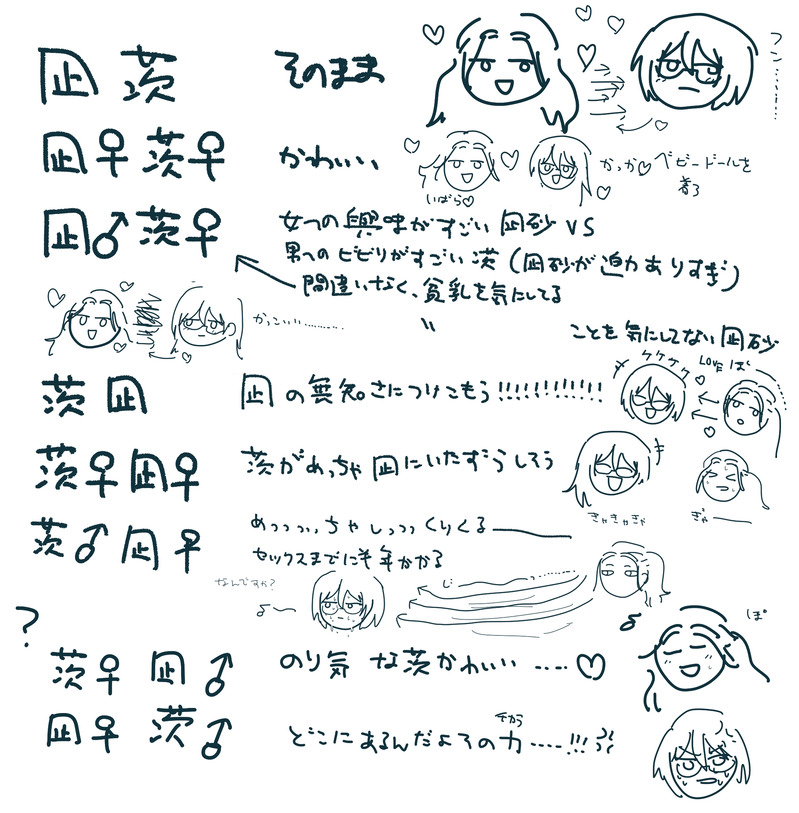 凪 茨 そのまま
フン……
凪♀ 茨♀ かわいい
いばら♡
かっか♡ ベビードールを
着る
凪♂ 茨♀ 女への興味がすごい 凪砂 VS
男へのビビりがすごい 茨 (凪砂が迫力ありすぎ)
間違いなく、貧乳を気にしてる
〃 ことを気にしてない凪砂
かっこいい………
茨 凪 凪の無知さにつけこもう!!!!!!!!!!!!
ケケケケ
LOVE ぽ
茨♀凪♀ 茨がめっちゃ凪にいたずらしそう
きゃきゃきゃ
ぎゃー
茨♂ 凪♀ めっっっっちゃじっっっくりくる
セックスまでに半年かかる
なんですか?
じ
?
茨♀ 凪♂ のり気 な茨かわいい ……♡
ぽ
凪♀ 茨♂ どこにあるんだよその力……!!!
チカラ